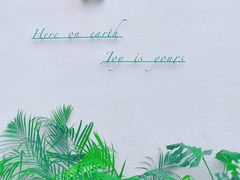 Here on earth
Joy is yours